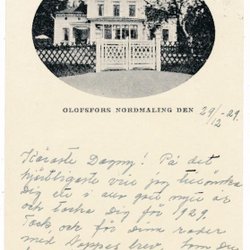 OLOFSFORS NORDMALING DEN 29/12 -29.
Käraste Dagny! På det
hjärtligaste vill jag tillönska
Dig ett i allo gott nytt år
och tacka Dig för 1929.
Tack, och för dina rader
med Pappas brev, som Du